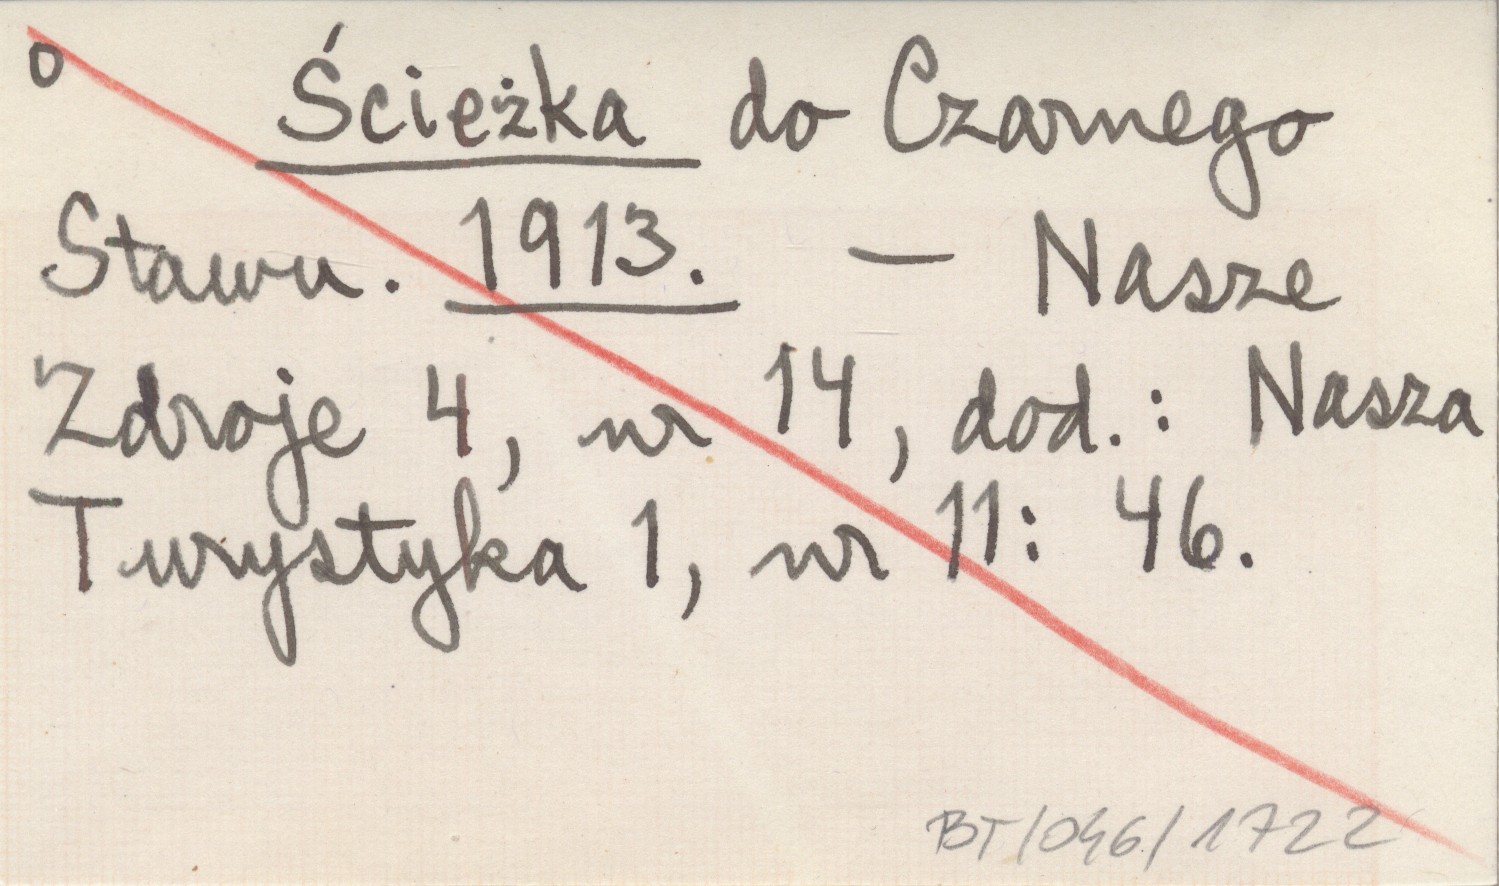 o
Ścieżka do Czarnego
Stawu. 1913. — Nasze
Zdroje 4, nr 14, dod.: Nasza
Turystyka 1, nr 11: 46.
BT/046/1722